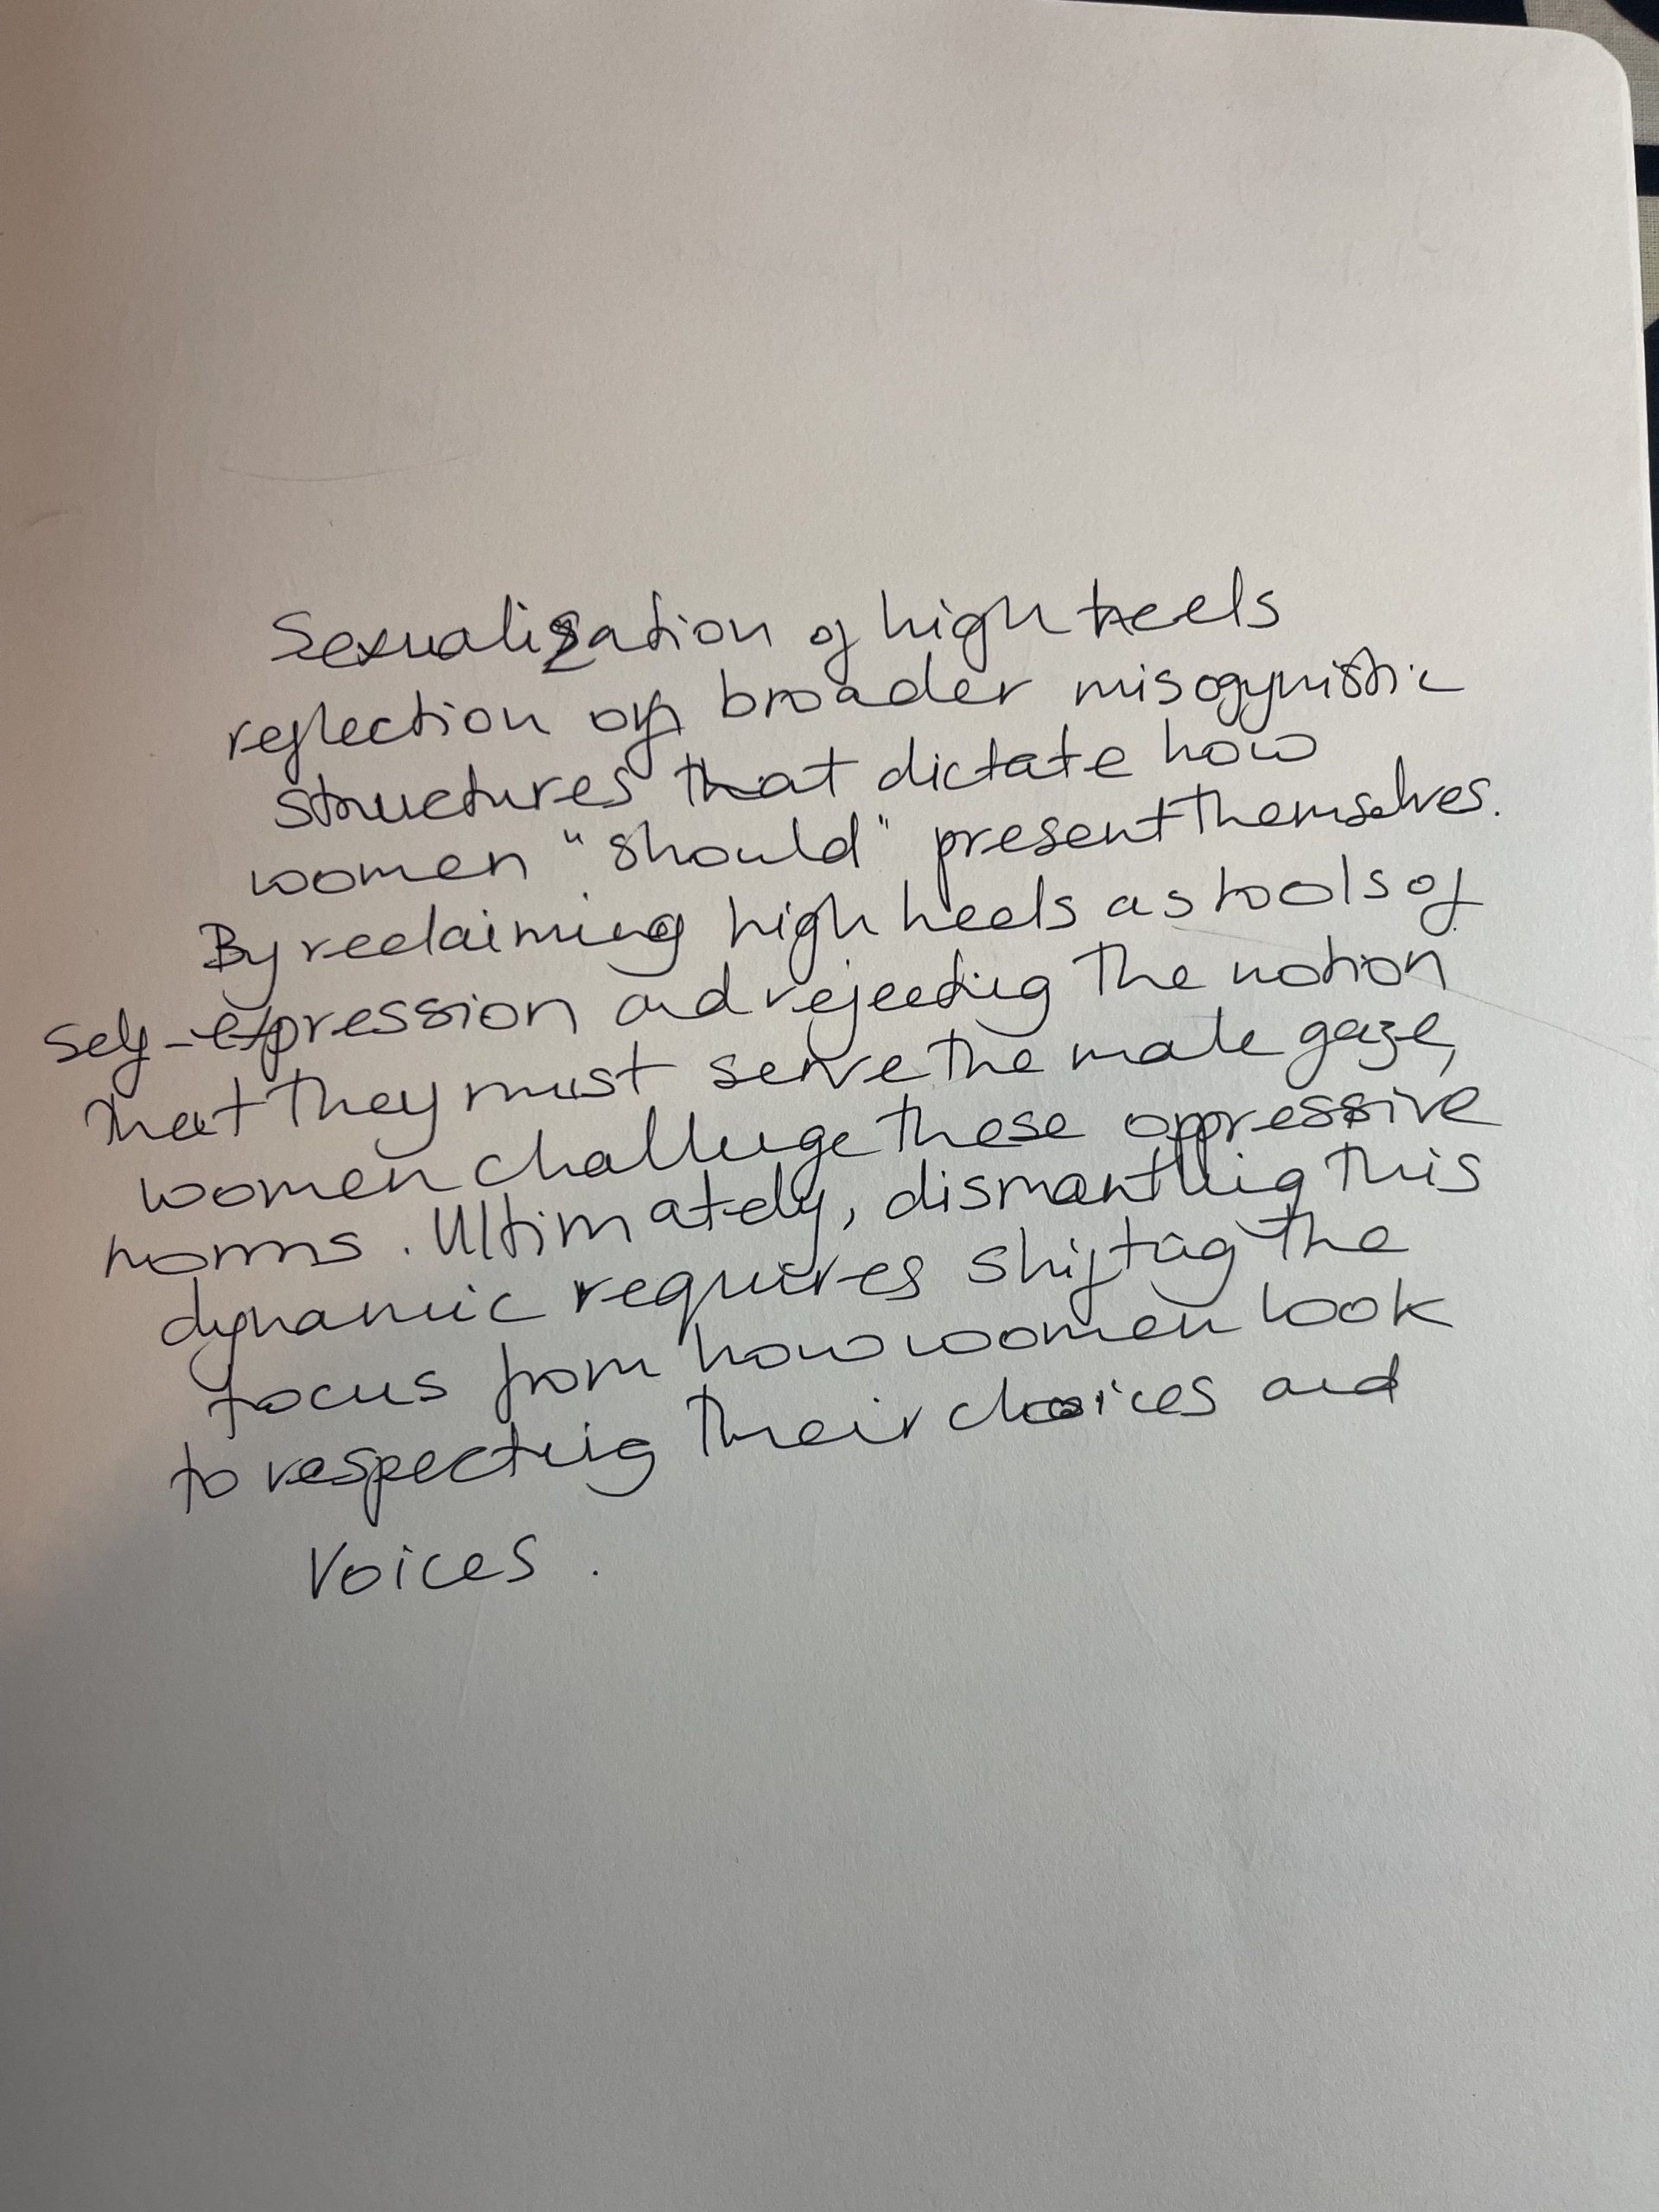 Sexualization of high heels
reflection of broader misogynistic
structures that dictate how
women "should" present themselves.
By reclaiming high heels as tools of
self-expression and rejecting the notion
that they must serve the male gaze,
women challenge these oppressive
norms. Ultimately, dismantling this
dynamic requires shifting the
focus from how women look
to respecting their choices and
voices.